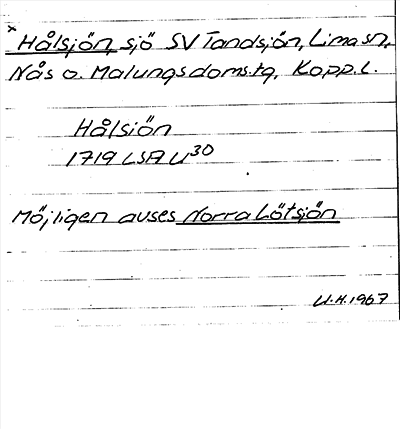 x
Hålsjön, sjö SV Tandsjön, Lima sn,
Nås o. Malungs doms.tg, Kopp.l.
Hålsiön
1719 LSA U30
Möjligen avses Norra Lötsjön
U.H. 1967